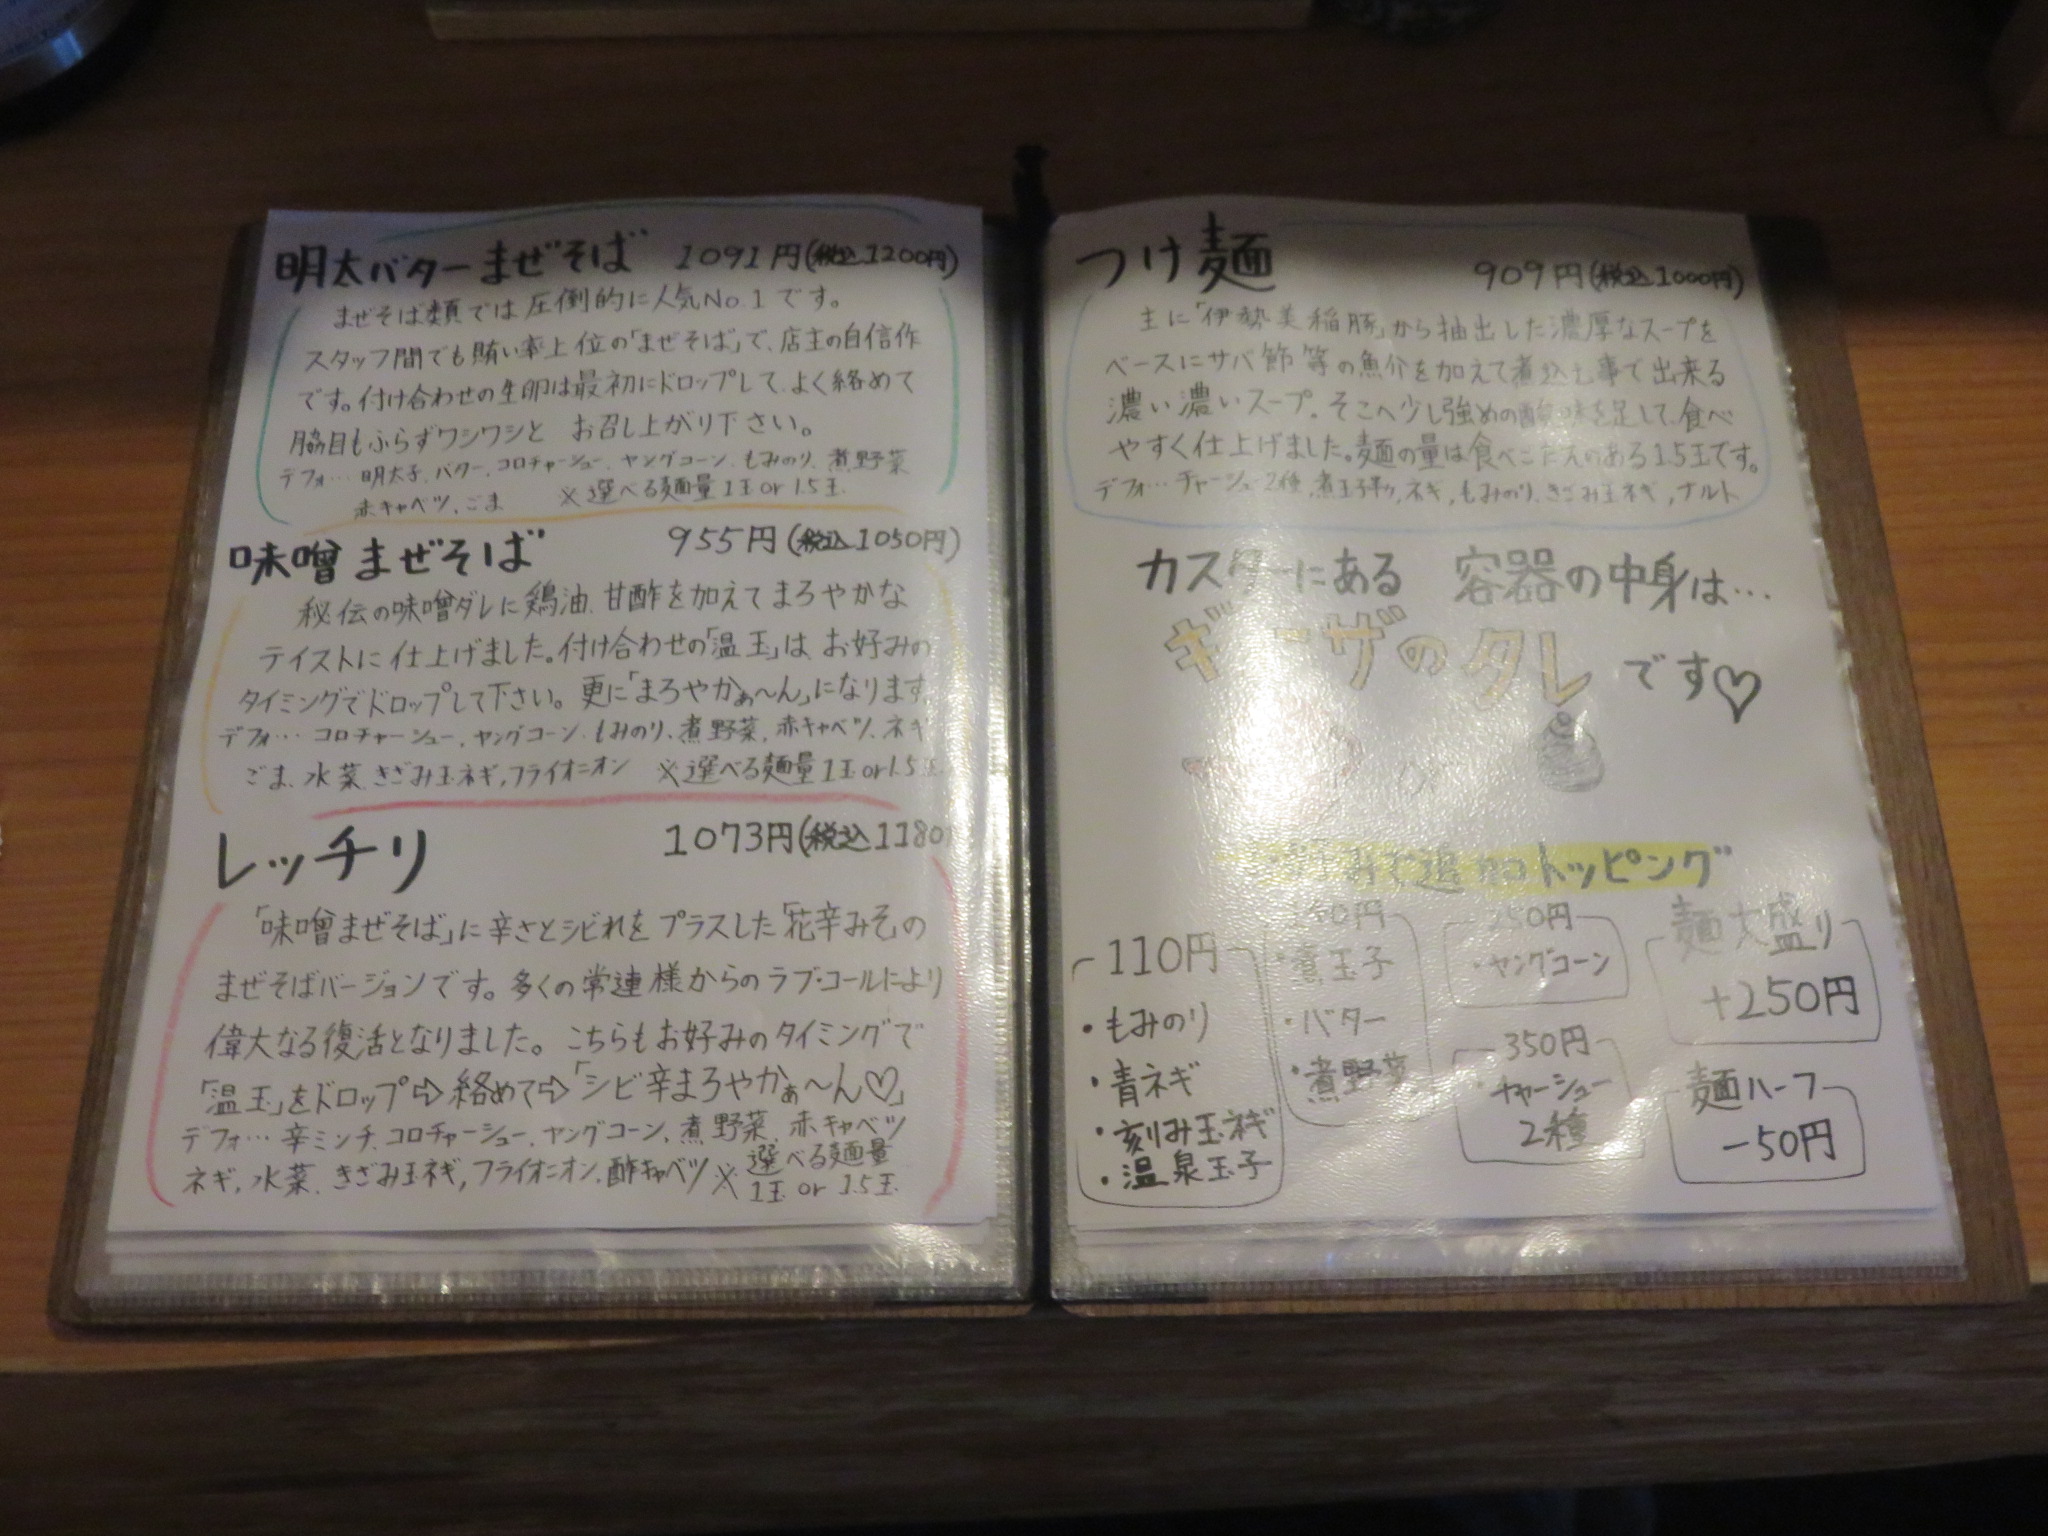 明太バターまぜそば 1091円(税込1200円)
まぜそば類では圧倒的に人気No.1です。
スタッフ間でも賄い率上位の「まぜそば」で、店主の自信作
です。付け合わせの生卵は最初にドロップして、よく絡めて
脇目もふらずワシワシと お召し上がり下さい。
デフォ…明太子、バター、コロチャーシュー、ヤングコーン、もみのり、煮野菜
赤キャベツ、ごま ※選べる麺量1玉or1.5玉
味噌まぜそば 955円(税込1050円)
秘伝の味噌ダレに鶏油、甘酢を加えてまろやかな
テイストに仕上げました。付け合わせの「温玉」は、お好みの
タイミングでドロップして下さい。更に「まろやかぁ〜ん」になります。
デフォ…コロチャーシュー、ヤングコーン、もみのり、煮野菜、赤キャベツ、ネギ
ごま、水菜、きざみ玉ネギ、フライオニオン ※選べる麺量1玉or1.5玉
レッチリ 1073円(税込1180
「味噌まぜそば」に辛さとシビれをプラスした「花辛みそ」の
まぜそばバージョンです。多くの常連様からのラブ・コールにより
偉大なる復活となりました。こちらもお好みのタイミングで
「温玉」をドロップ⇨絡めて⇨「シビ辛まろやかぁ〜ん♡」
デフォ…辛ミンチ、コロチャーシュー、ヤングコーン、煮野菜、赤キャベツ
ネギ、水菜、きざみ玉ネギ、フライオニオン、酢キャベツ ※選べる麺量
1玉 or 1.5玉
つけ麺 909円(税込1000円)
主に「伊勢美稲豚」から抽出した濃厚なスープを
ベースにサバ節等の魚介を加えて煮込む事で出来る
濃い濃いスープ。そこへ少し強めの酸味を足して、食べ
やすく仕上げました。麺の量は食べごたえのある1.5玉です。
デフォ…チャーシュー2種、煮玉子半分、ネギ、もみのり、きざみ玉ネギ、ナルト
カスターにある 容器の中身は…
ギョーザのタレです♡
追加トッピング
110円
・もみのり
・青ネギ
・刻み玉ネギ
・温泉玉子
・煮玉子
・バター
・煮野菜
250円
・ヤングコーン
350円
・チャーシュー
2種
麺大盛り
+250円
麺ハーフ
-50円